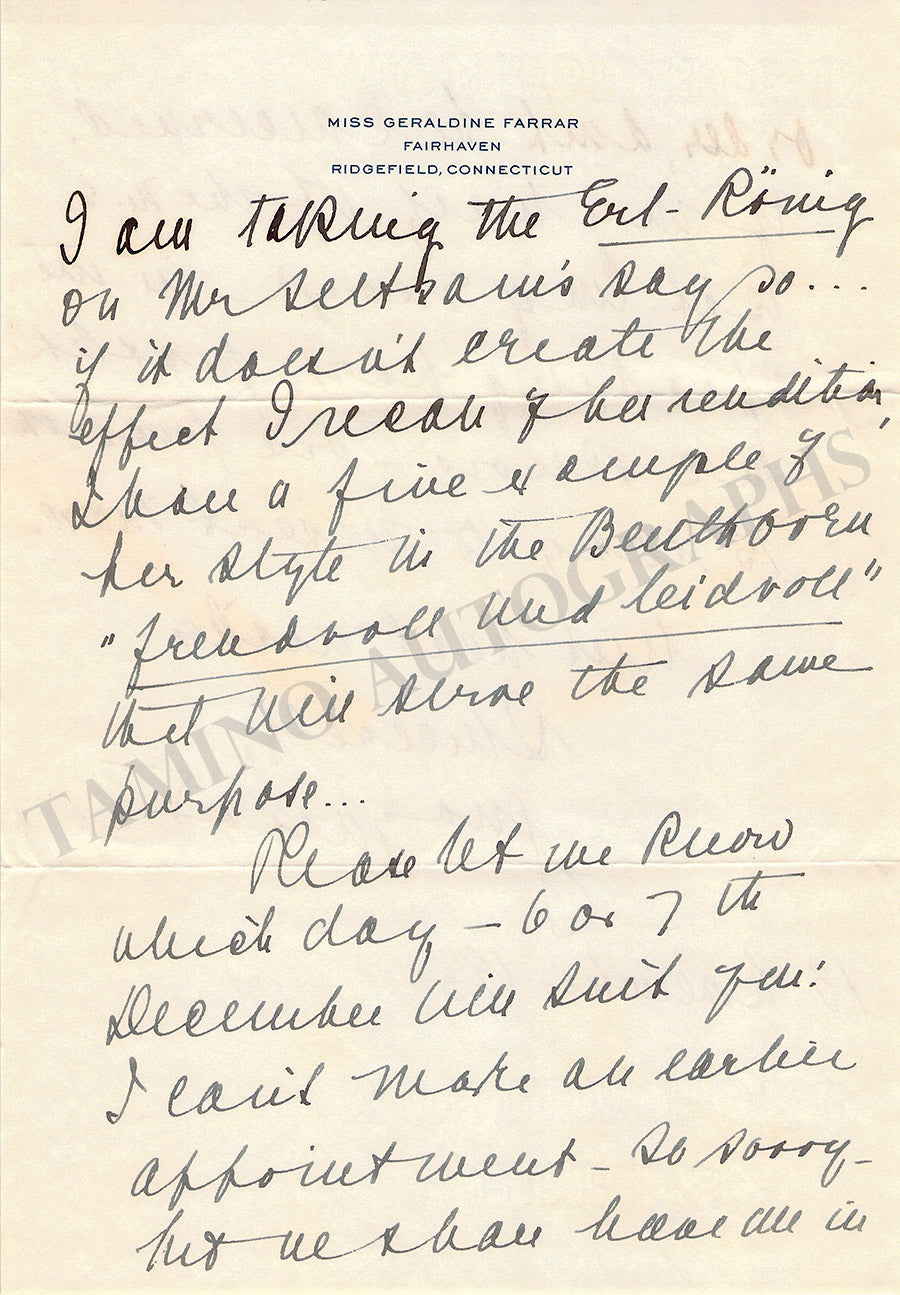 MISS GERALDINE FARRAR
FAIRHAVEN
RIDGEFIELD, CONNECTICUT
I am taking the Erl-König
on Mr Seltsam's say so...
if it doesn't create the
effect I recall of her rendition,
I have a fine example of
her style in the Beethoven
"freudvoll und leidvoll"
that will serve the same
purpose...
Please let me know
which day – 6 or 7 th
December will suit you!
I can't make an earlier
appointment – so sorry –
but we shall have all in
TAMINO AUTOGRAPHS